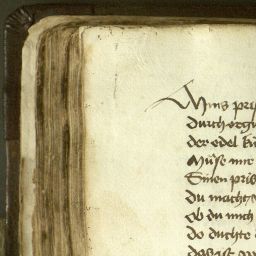 Mins pri
durch ergi
der edel kü
Müse mir
Einen pris
Du machtes
ob du mich
do duchte